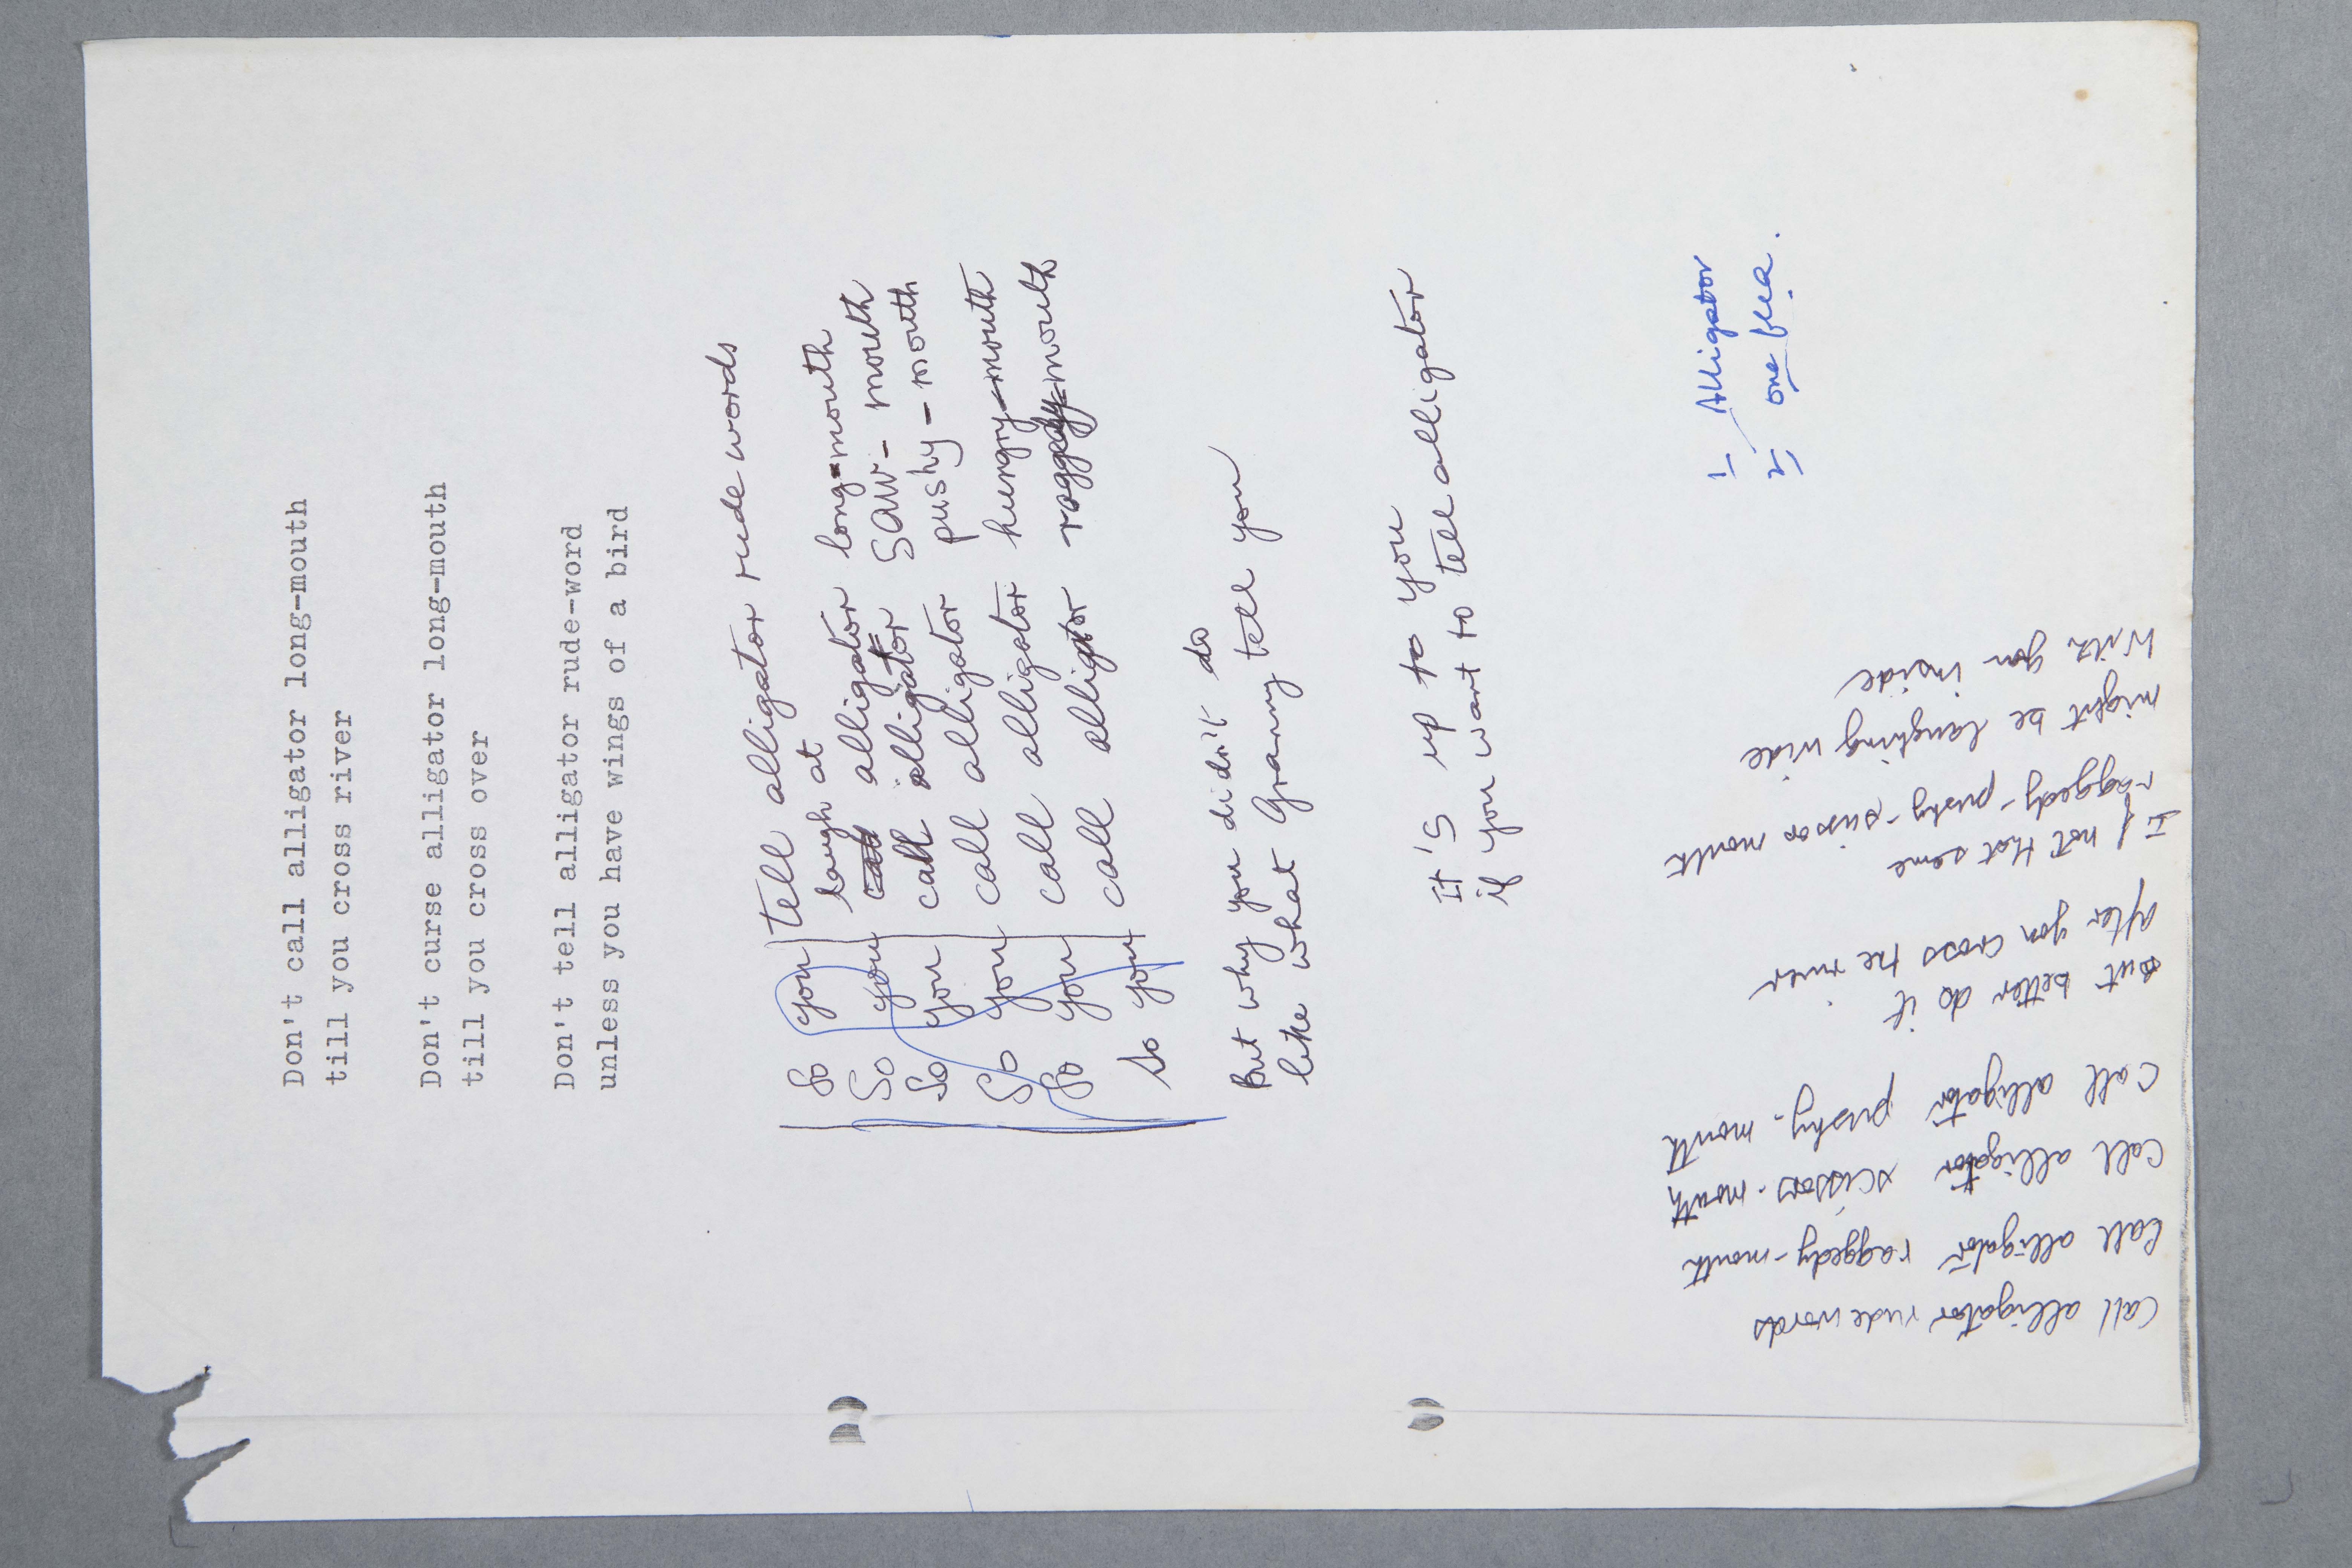 Don't call alligator long-mouth
till you cross river
Don't curse alligator long-mouth
till you cross over
Don't tell alligator rude-word
unless you have wings of a bird
So you tell alligator rude words
laugh at
So you call alligator long-mouth
So you call alligator saw-mouth
So you call alligator pushy-mouth
So you call alligator hungry-mouth
So you call alligator raggedy-mouth
But why you didn't do
like what Granny tell you
It's up to you
if you want to tell alligator
Call alligator rude words
Call alligator raggedy-mouth
Call alligator scissors-mouth
Call alligator pushy-mouth
But better do it
after you cross the river
If not that same
raggedy-pushy-scissor mouth
might be laughing wide
with you inside
1 Alligator
2 one flea.